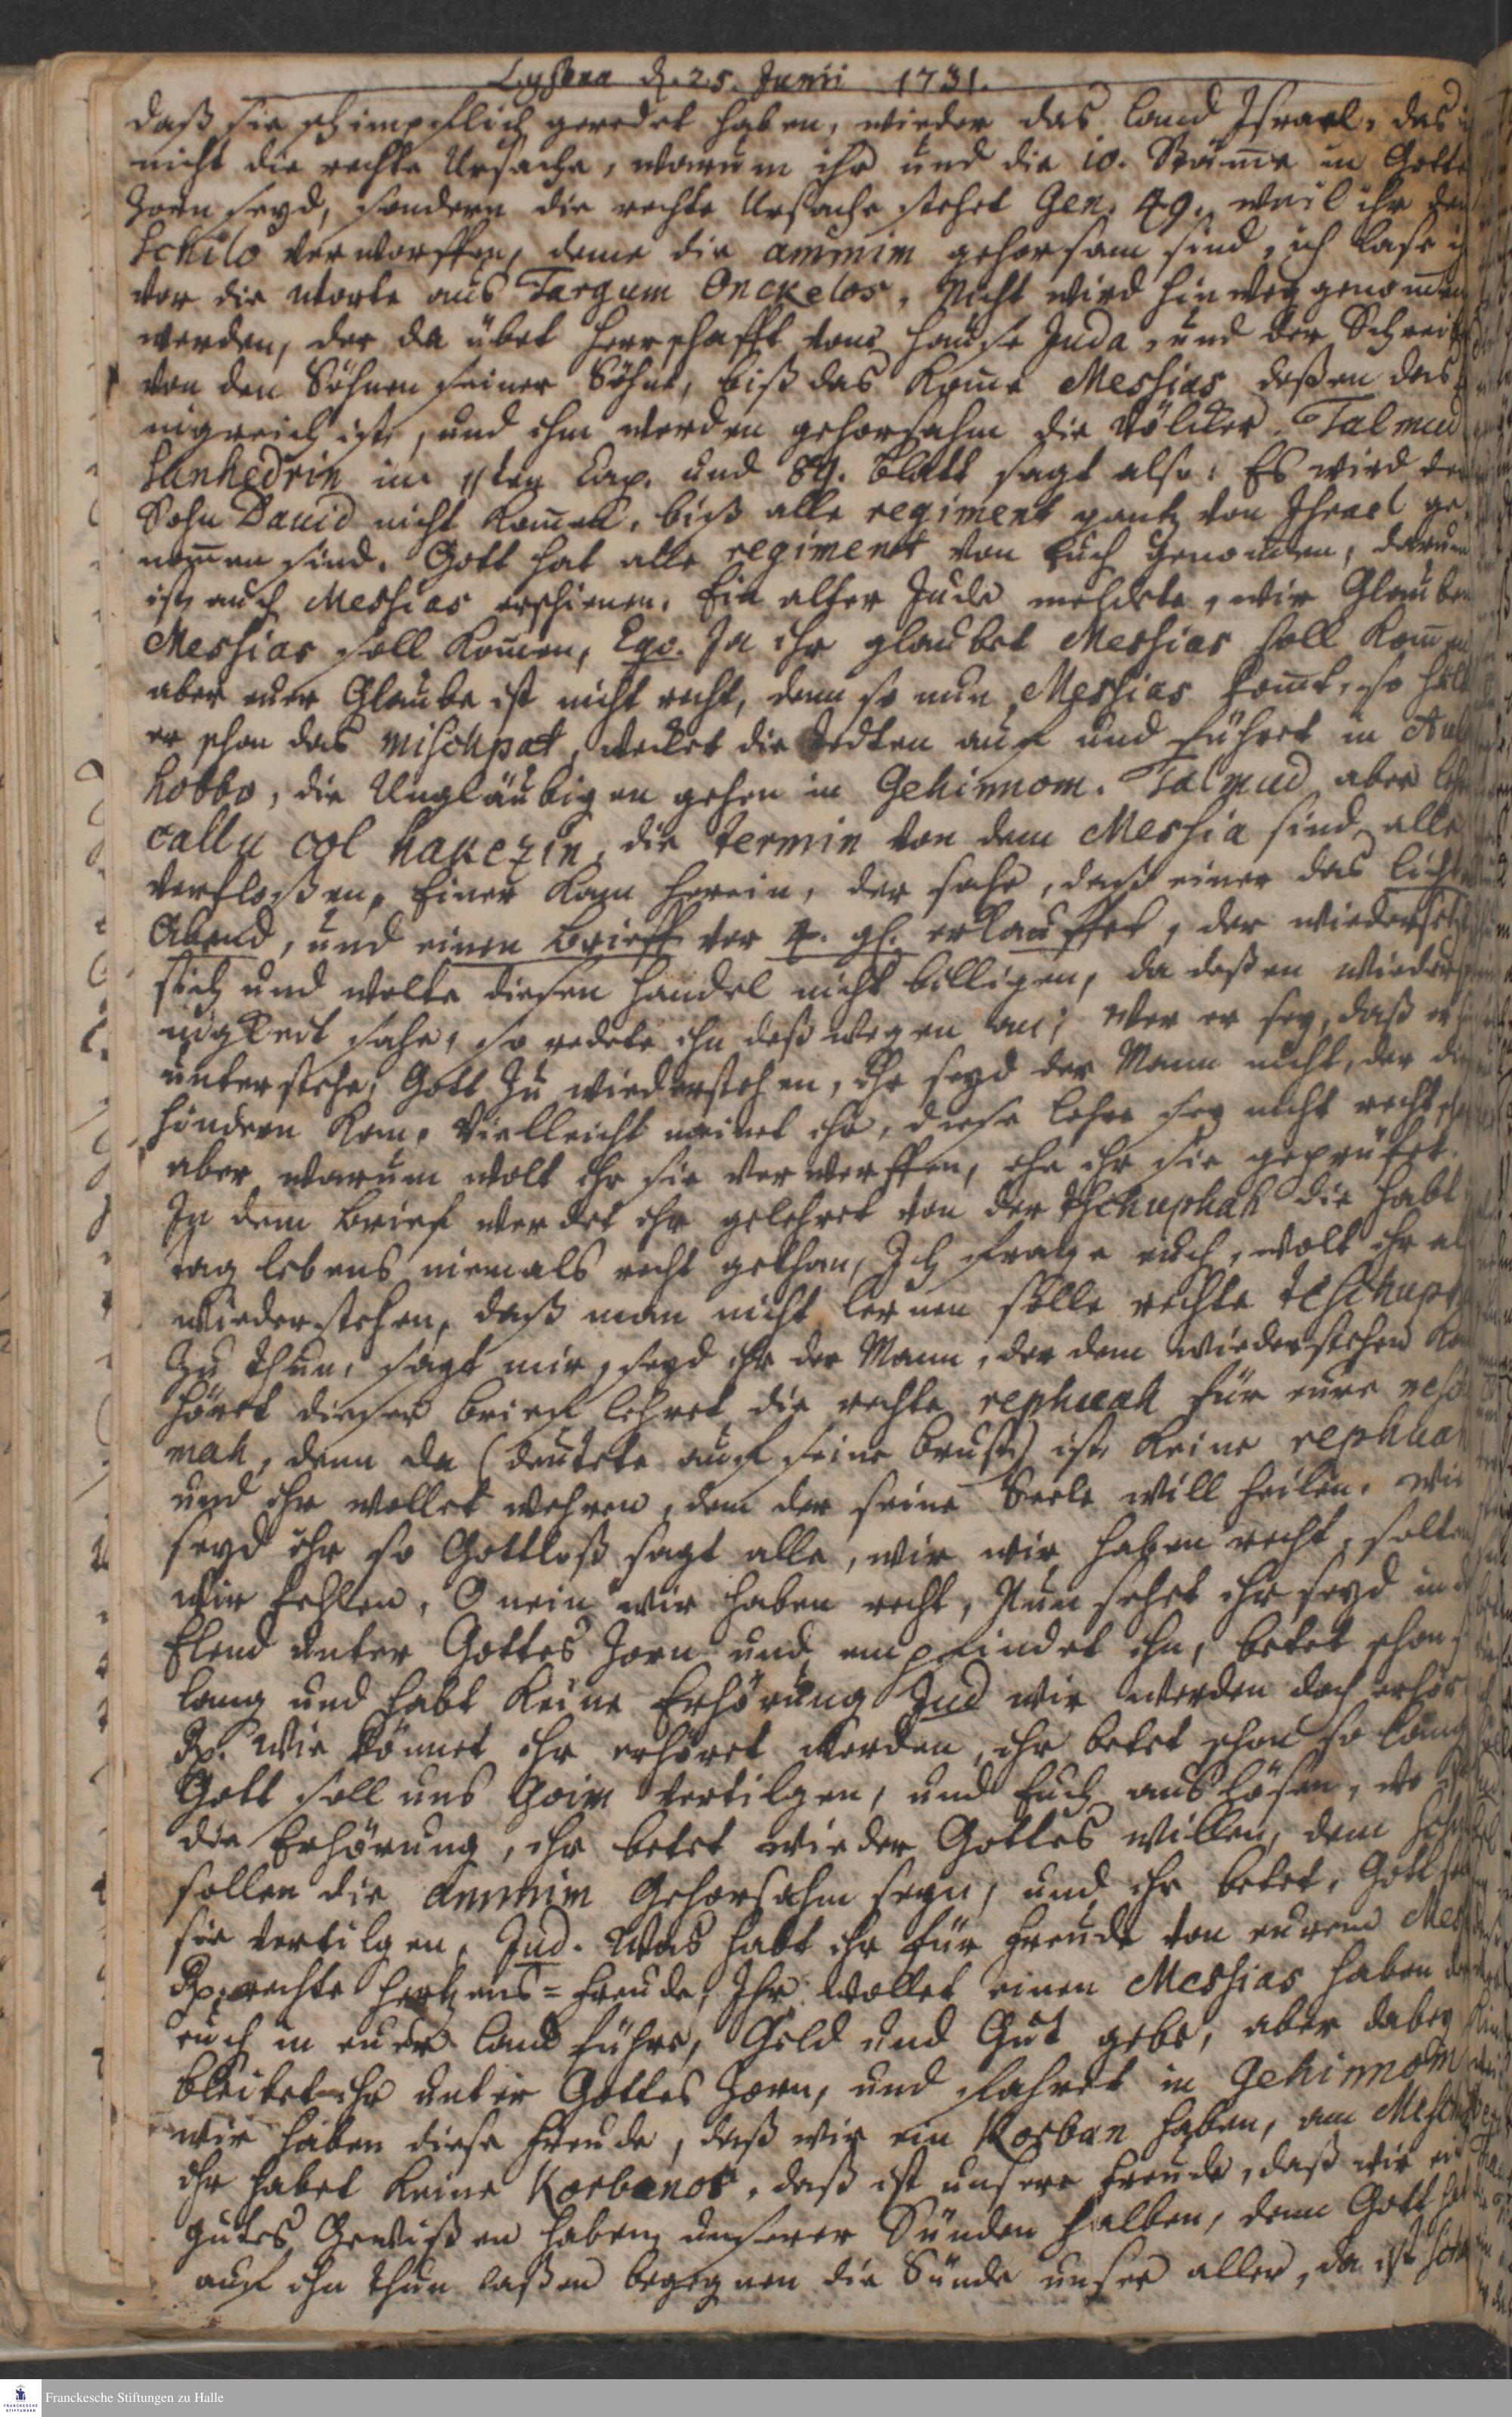 Lyssena d. 25. Junii 1731.
daß sie schimpflich geredet haben, wieder das Land Israel, das
nicht die rechte Ursache, warum ihr und die 10. Stäm̅e in Gottes
Zorn seyd, sondern die rechte Ursache stehet Gen. 49. weil ihr den
Schilo verworffen, deme die ammim gehorsam sind, ich lase
vor die Worte aus Targum Onckelos. Nicht wird hinweg genom̅en
werden, der da übet Herrschafft vom Hause Juda, und der Schreiber
von den Söhnen seiner Söhne, biß das kom̅e Messias deßen das
nigreich ist, und ihm werden gehorsahm die Völcker. Talmud
Sanhedrin im 11ten Cap. und blatt sagt also: Es wird der
Sohn David nicht kom̅en, biß alle regiment gantz von Jsrael ge
nom̅en sind. Gott hat alle regiment von Euch genom̅en, darum
ist auch Messias erschienen. Ein alter Jude meldete, wir Glauben
Messias soll kom̅en, Ego. Ja ihr glaubet Messias soll kom̅en
aber euer Glaube ist nicht recht, denn so nun Messias kom̅t, so hält
er schon das mischpat, wecket die Todten auf und führet in
habbo, die Ungläubigen gehen in Gehinnom. Talmud aber
callu col hakezin, die termin von dem Messia sind alle
verfloßen. Einer kam herein, der sahe, daß einer das Licht
Abend, und einen brieff vor 4. gl. erkauffet, der wiedersetzte
sich und wolte diesen Handel nicht billigen, da deßen wieders
nigkeit sahe, so redete ihn deßwegen an; Wer er sey, daß er
unterstehe, Gott zu wiederstehen, ihr seyd der Mann nicht, der
hindern kan. Vielleicht meinet ihr, diese Lehre sey nicht recht
aber warum wolt ihr sie verwerffen, ehe ihr sie geprüfet.
In dem brief werdet ihr gelehret von der thschuphah die habt
tag lebens niemals recht gethan, Ich frage euch, wolt ihr
wiederstehen, daß man nicht lernen solle rechte teschuph
zu thun, sagt mir, seyd ihr der Mann, der dem wiederstehen
höret dieser brief lehret die rechte rephuah für eure nescho
mah, denn da (deutete auf seine brust) ist keine rephuah
und ihr wollet wehren, dem der seine Seele will heilen. wie
seyd ihr so Gottloß sagt alle, wir wir haben recht, solten
wir fehlen, O nein wir haben recht, Nun sehet ihr seyd in
Elend unter Gottes Zorn und empfindet ihn, betet schon
lang und habt keine Erhörung Jud wir werden doch erhör
Rp. Wie könnet ihr erhöret werden, ihr betet schon so lang
Gott soll uns Goim vertilgen, und Euch auslösen, wo ist
die Erhörung, ihr betet wieder Gottes willen, dem
sollen die ammim Gehorsahm seyn, und ihr betet, Gott soll
sie vertilgen, Jud. Was habt ihr für Freude von eurem Mes
Rp. rechte Hertzens=Freude, Ihr wollet einen Messias haben der
euch in euer land führe, Geld und Gut gebe, aber dabey
bleibet ihr unter Gottes Zorn, und fahret in Gehinnom
wir haben diese Freude, daß wir ein Korban haben, am Mesch
ihr habet keine Korbanos, daß ist unsere Freude, daß wir ein
gutes Gewißen haben unserer Sünden halben, denn Gott hat
auf ihn thun laßen begegnen die Sünde unser aller, da ist
Franckesche Stiftungen zu Halle